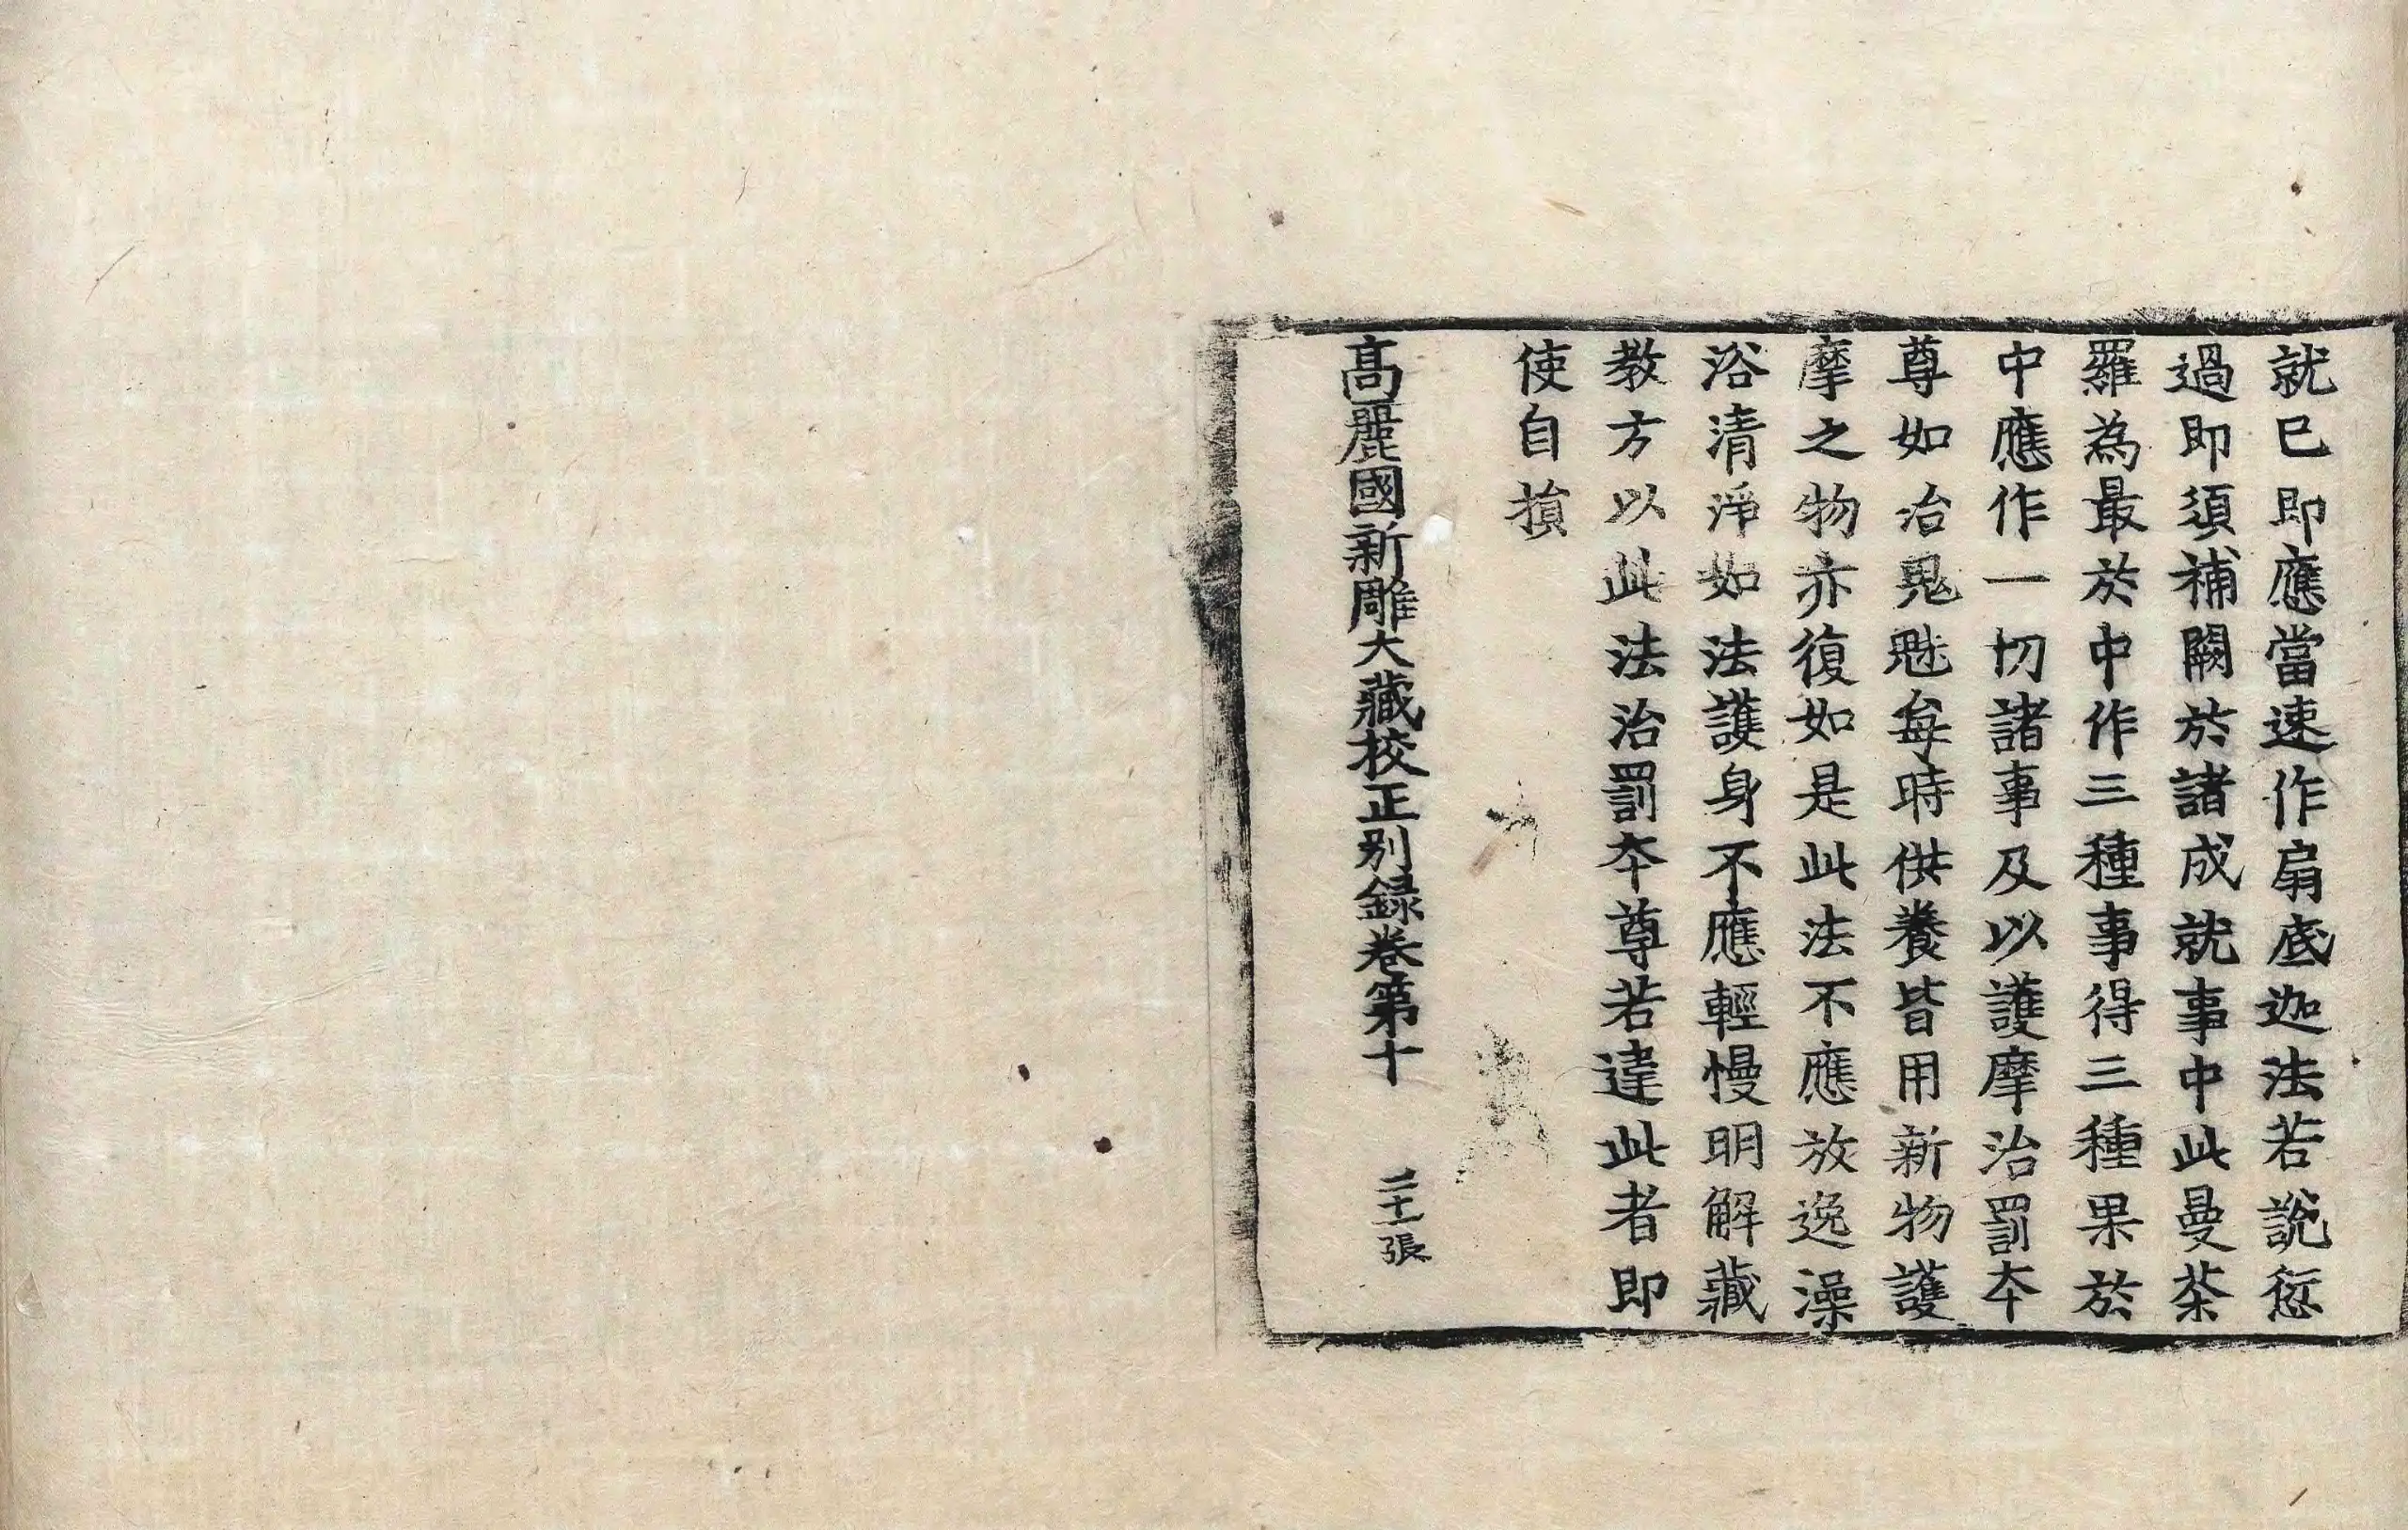 就已即應當速作扇底迦法若說愆
過即須補闕於諸成就事中此曼茶
羅為最於中作三種事得三種果於
中應作一切諸事及以護摩治罰夲
尊如治鬼魅每時供養皆用新物護
摩之物亦復如是此法不應放逸澡
浴清淨如法護身不應輕慢明解藏
教方以此法治罰夲尊若違此者即
使自損
高麗國新雕大藏校正別録卷第十 二十一張